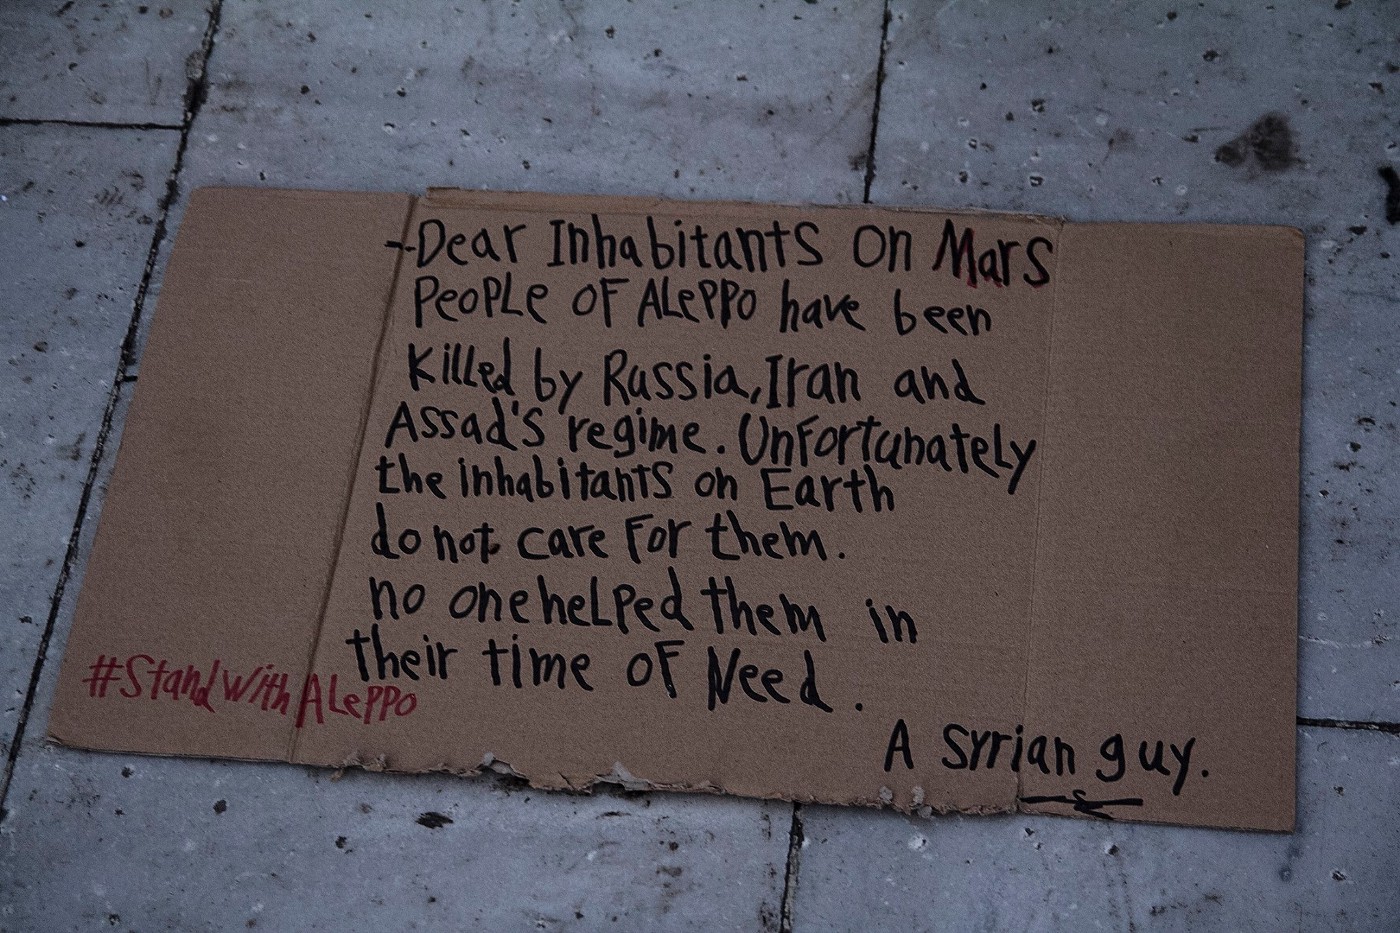 -Dear Inhabitants on Mars
People of Aleppo have been
Killed by Russia, Iran and
Assad's regime. Unfortunately
the inhabitants on Earth
do not care for them.
no one helped them in
their time of Need.
#StandWithAleppo
A Syrian guy.